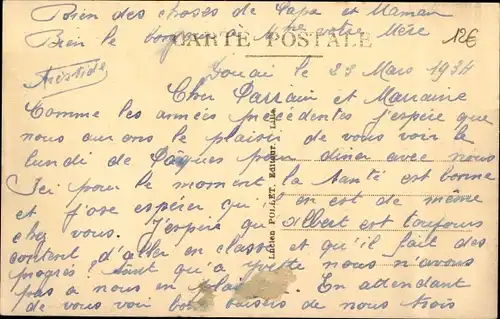 Bien des choses de Papa et Maman
Bien le bonjour à Mme votre Mère
CARTE POSTALE
12€
Aristide
Douai le 23 Mars 1934
Cher Parrain et Marraine
Comme les années précédentes j'espère que
nous aurons le plaisir de vous voir le
lundi de Pâques pour diner avec nous
Ici pour le moment la santé est bonne
et j'ose espérer qu'il en est de même
chez vous. J'espère qu'albert est toujours
content d'aller en classe et qu'il fait des
progrès! tant qu'a yvette nous n'avons
pas a nous en En attendant
de vous voir bons baisers de nous trois
Lucien POLLET, Editeur, Lille